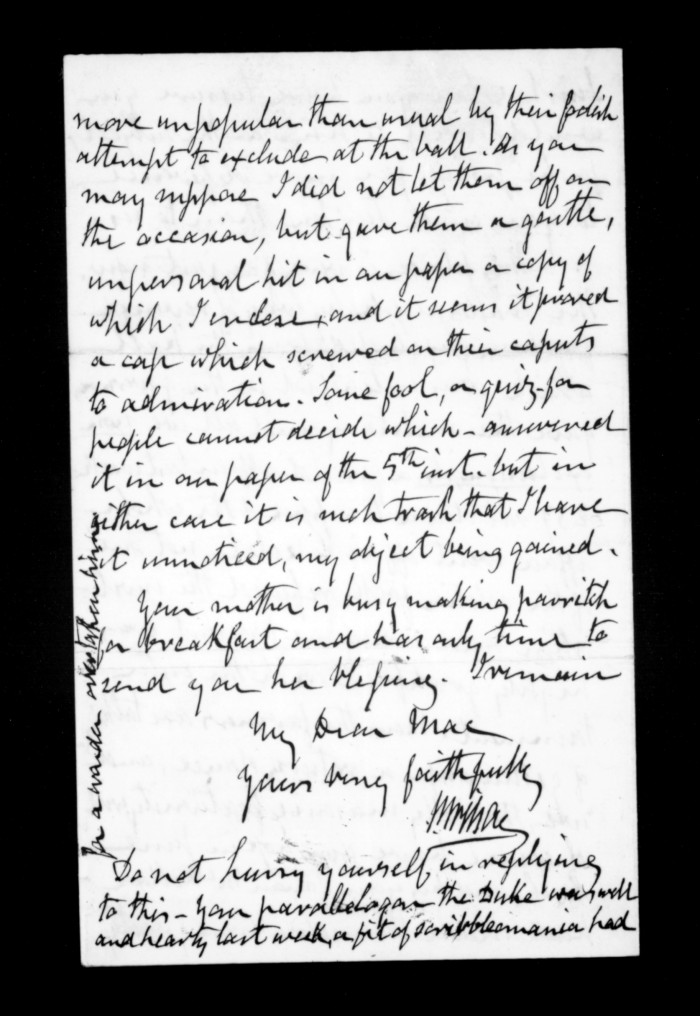 more unpopular than usual by their foolish
attempt to exclude at the ball. As you
may suppose I did not let them off on
the occasion, but gave them a gentle,
unpersonal hit in our paper a copy of
which I inclose, and it seems it proved
a cap which screwed on their caputs
to admiration. Some fool, or quiz - for
people cannot decide which - answered
it in our paper of the 5th inst. but in
either case it is such trash that I have
it unnoticed, my object being gained.
Your mother is busy making parritch
for breakfast and has only time to
send you her blessing. I remain
My Dear Mac
Yours very faithfully
Do not hurry yourself in replying
to this - Your parallelogram the Duke was well
and hearty last week, a fit of scribbleomania had
for a wonder overtaken him